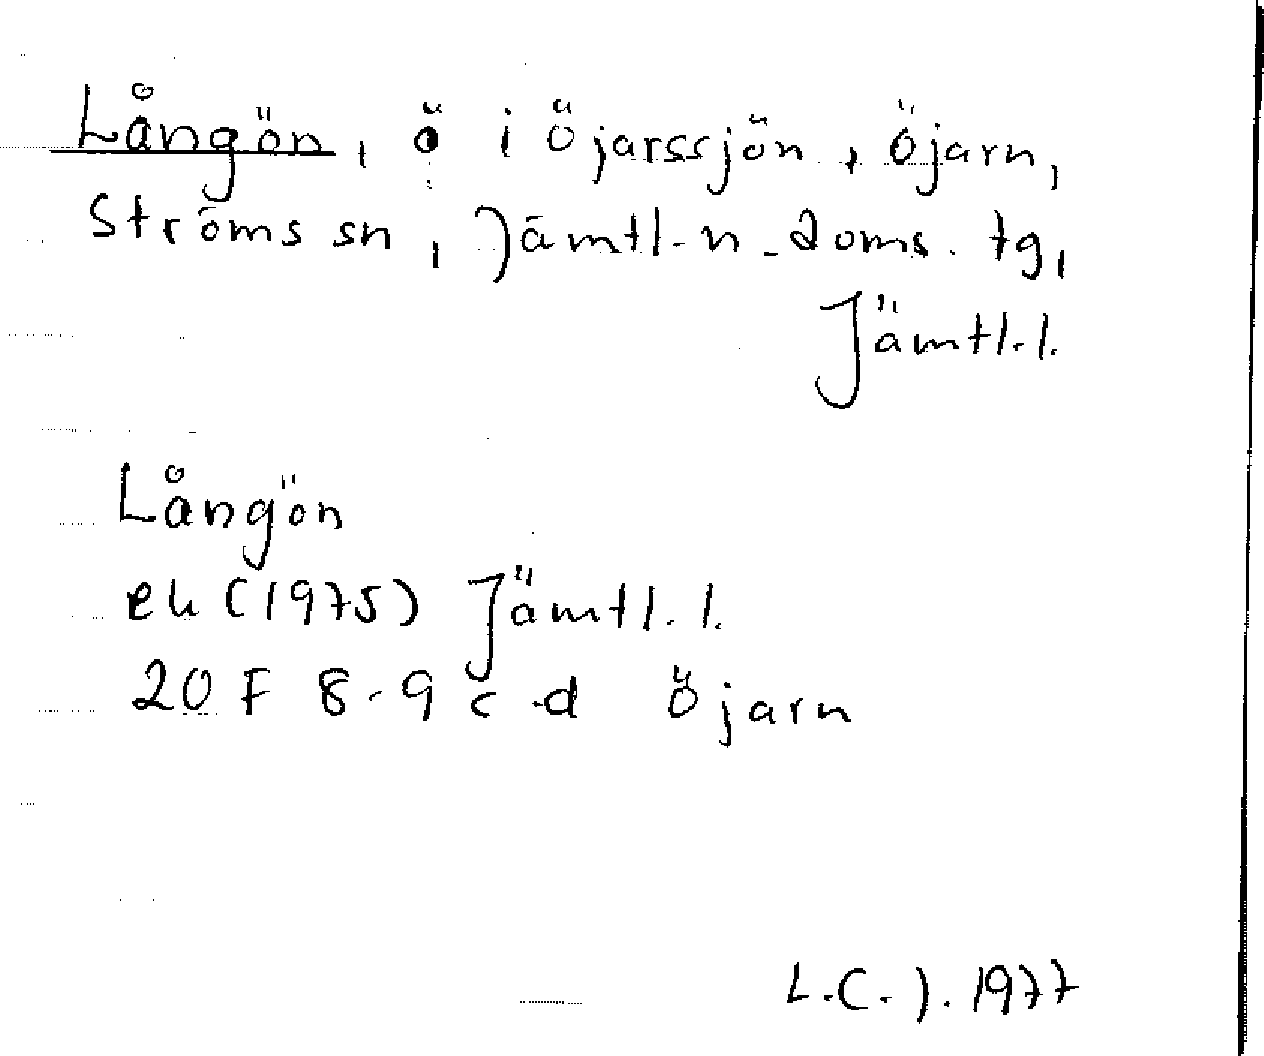 Långön, ö i Öjarssjön, Öjarn,
Ströms sn, Jämtl-n-doms. tg,
Jämtl.l.
Långön
ek (1975) Jämtl.l.
20 F 8-9 c-d Öjarn
L.C.J. 1977